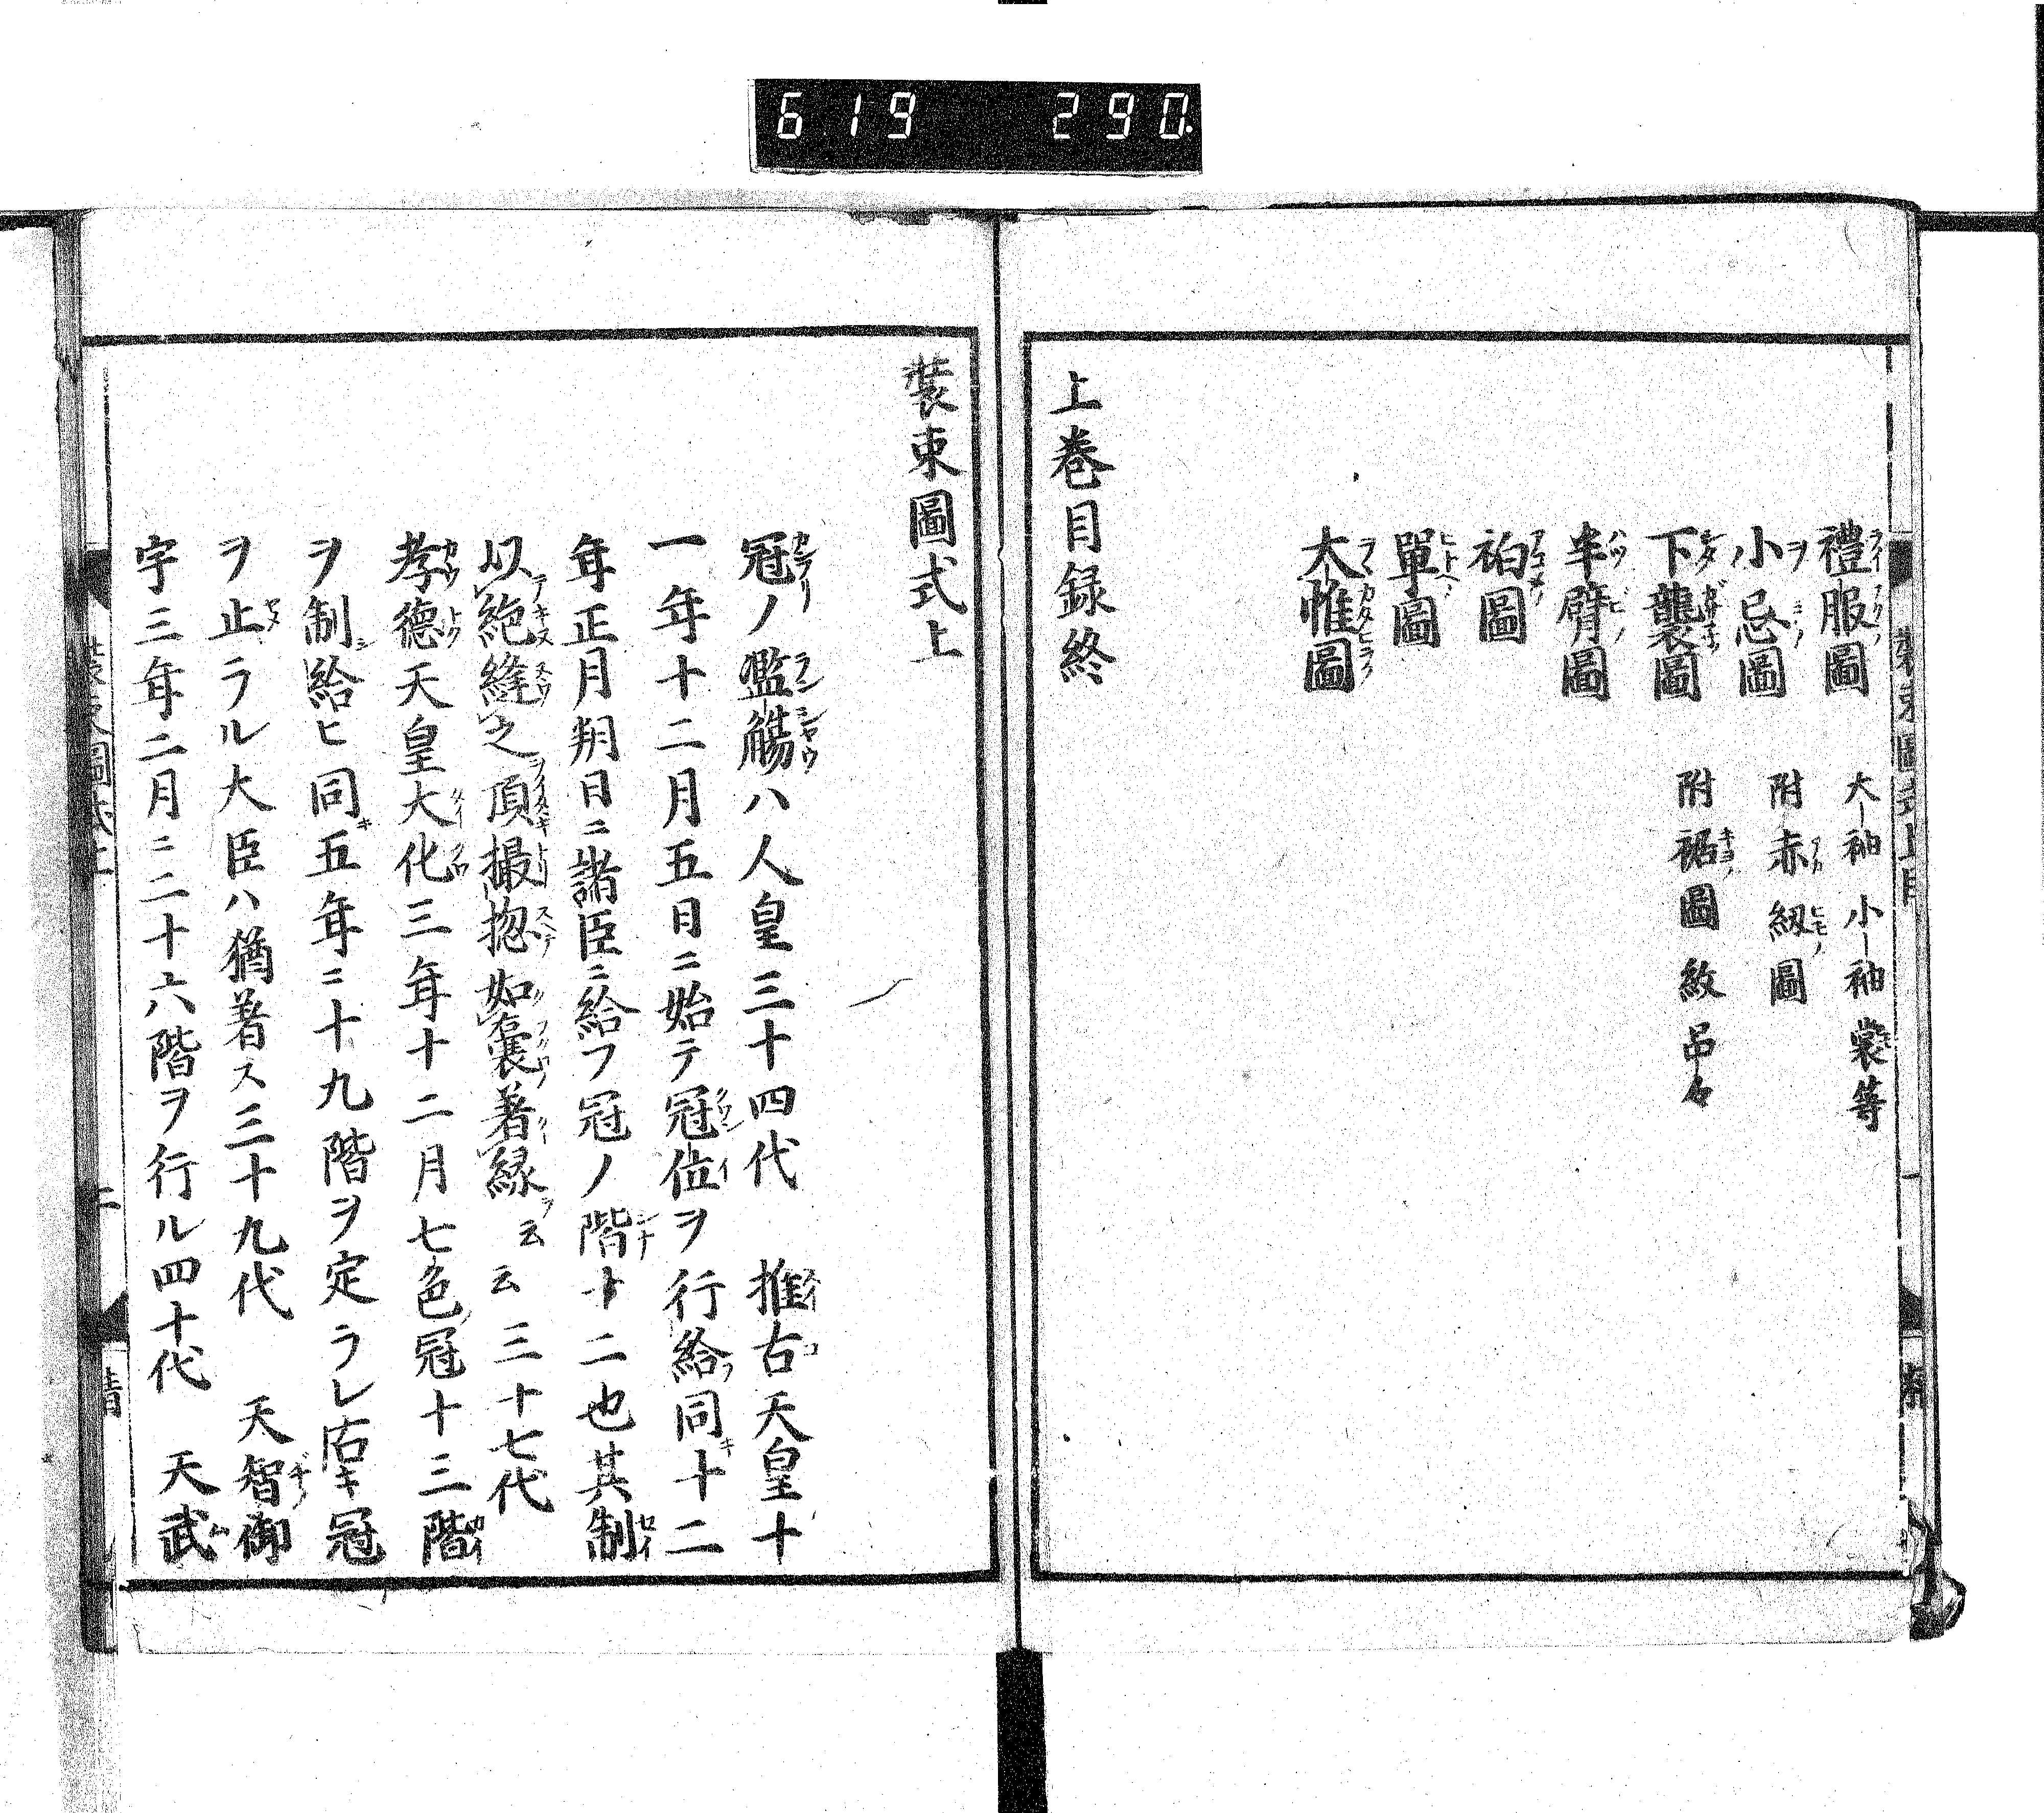 619 290.
禮服圖 大袖 小袖 裳等
小忌圖 附赤紐圖
下襲圖 附裾圖 紋品々
半臂圖
袙圖
單圖
大帷圖
上巻目録終
装束圖式上
冠ノ濫觴ハ人皇三十四代 推古天皇十
一年十二月五日ニ始テ冠位ヲ行給同十二
年正月朔日ニ諸臣ニ給フ冠ノ階十二也其制
以絁縫之頂撮捴如囊著緣云云三十七代
孝德天皇大化三年十二月七色冠十三階
ヲ制給ヒ同五年ニ十九階ヲ定ラレ古キ冠
ヲ止ラル大臣ハ猶著ス三十九代 天智御
宇三年二月ニ二十六階ヲ行ル四十代 天武